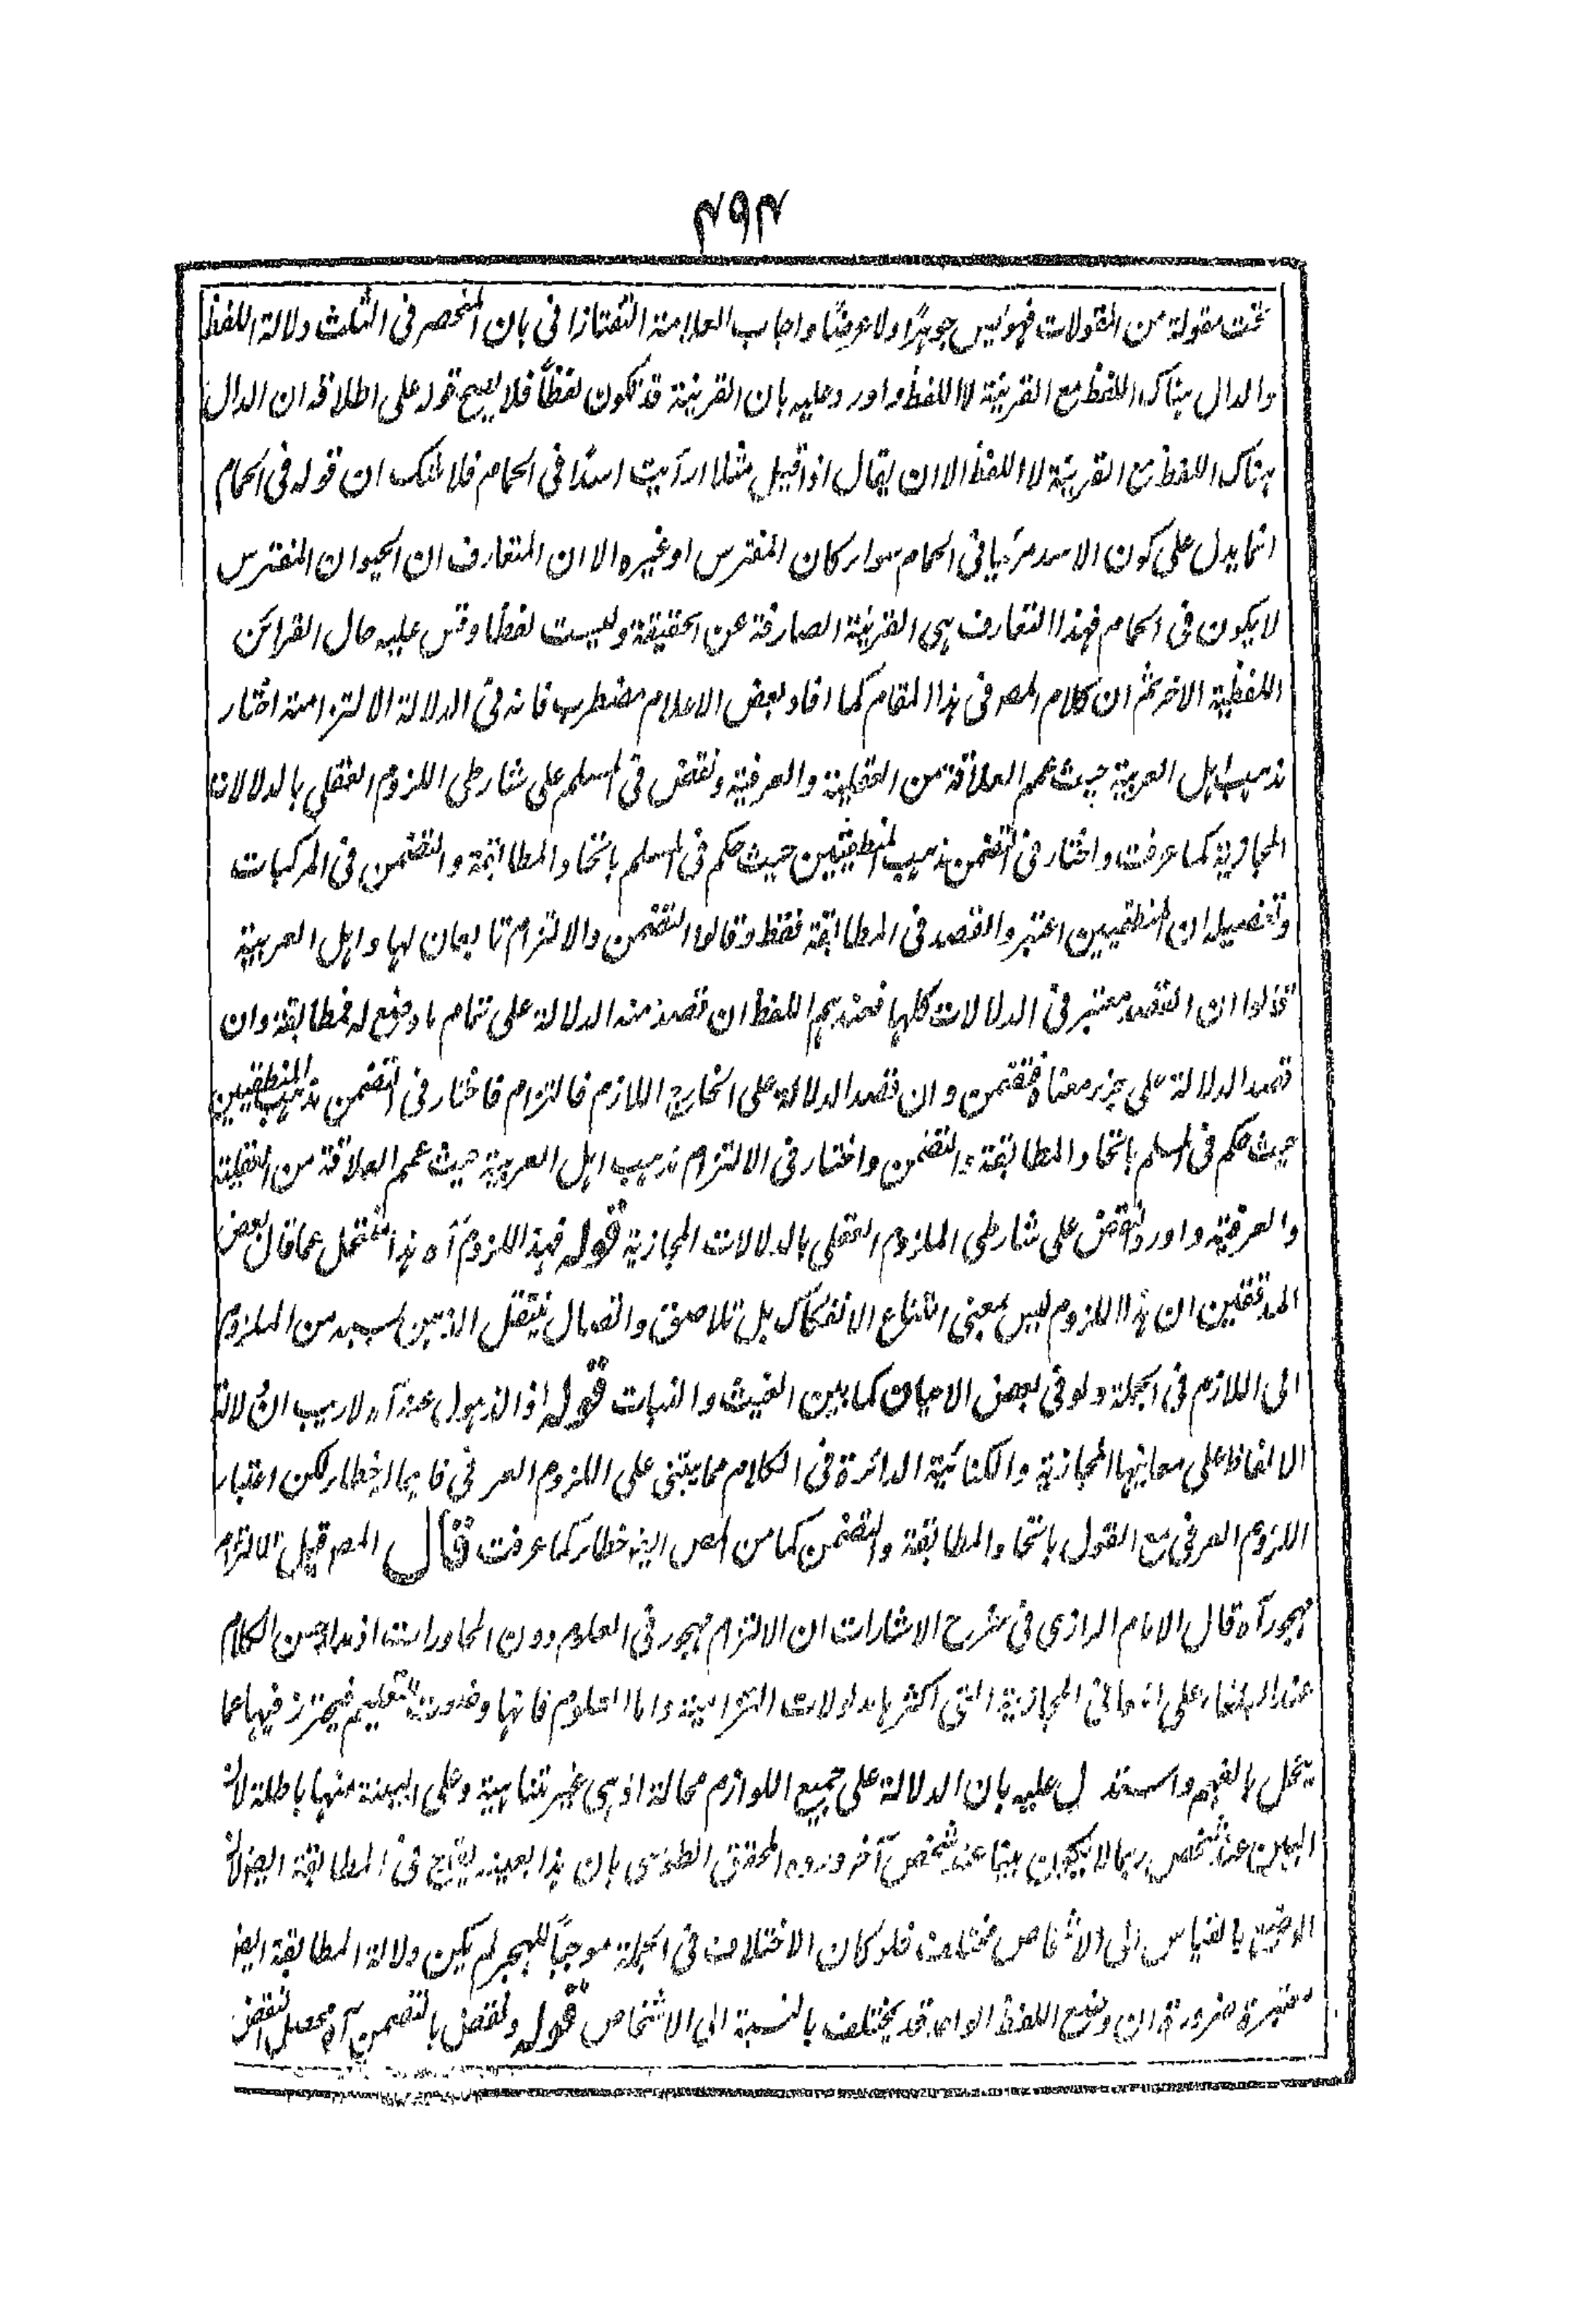 ۴۹۴
تحت مقولة من المقولات فهو ليس جوهرًا ولا عرضًا واجاب العلامة التفتازانى بان المنحصر فى الثلث دلالة اللفظ
والدال هناك اللفظ مع القرينة لا اللفظ واورد عليه بان القرينة قد تكون لفظًا فلا يصح قوله على اطلاقه ان الدال
هناك اللفظ مع القرينة لا اللفظ الا ان يقال اذا قيل مثلا رأيت اسدًا فى الحمام فلا شك ان قوله فى الحمام
انما يدل على كون الاسد مرئيا فى الحمام سواء كان المفترس او غيره الا ان المتعارف ان الحيوان المفترس
لا يكون فى الحمام فهذا التعارف هى القرينة الصارفة عن الحقيقة وليست لفظًا وقس عليه حال القرائن
اللفظية الاخر ثم ان كلام المصه فى هذا المقام كما افاد بعض الاعلام مضطرب فانه فى الدلالة الالتزامية اختار
مذهب اهل العربية حيث عمم العلاقة من العقلية والعرفية ونقض فى السلم على شارطى اللزوم العقلى بالدلالات
المجازية كما عرفت واختار فى التضمن مذهب المنطقيين حيث حكم فى السلم باتحاد المطابقة والتضمن فى المركبات
وتفصيله ان المنطقيين اعتبروا القصد فى المطابقة فقط وقالوا التضمن والالتزام تابعان لها واهل العربية
قالوا ان القصد معتبر فى الدلالات كلها فعندهم اللفظ ان قصد منه الدلالة على تمام ما وضع له فمطابقة وان
قصد الدلالة على جزء معناه فتضمن وان قصد الدلالة على الخارج اللازم فالتزام فاختار فى التضمن مذهب المنطقيين
حيث حكم فى السلم باتحاد المطابقة والتضمن واختار فى الالتزام مذهب اهل العربية حيث عمم العلاقة من العقلية
والعرفية واورد النقض على شارطى اللزوم العقلى بالدلالات المجازية قوله فهذا اللزوم آه هذا متحمل عما قال بعض
المدققين ان هذا اللزوم ليس بمعنى امتناع الانفكاك بل تلاصق واتصال ينتقل الذهن بسببه من الملزوم
الى اللازم فى الجملة ولو فى بعض الاحيان كما بين الغيث والنبات قوله اذ الذهول عنه آه لا ريب ان دلالة
الالفاظ على معانيها المجازية والكنائية الدائرة فى الكلام مما يبتنى على اللزوم العرفى فايها الخطاء لكن اعتبار
اللزوم العرفى مع القول باتحاد المطابقة والتضمن كما من المص ايضا خطاء كما عرفت قال المصه قيل الالتزام
مهجور آه قال الامام الرازى فى شرح الاشارات ان الالتزام مهجور فى العلوم دون المحاورات اذ مدار حسن الكلام
عند البلغاء على المعانى المجازية التى اكثرها مدلولات التزامية واما العلوم فانها وضعت للتعليم فيحترز فيها عما
يخل بالفهم واستدل عليه بان الدلالة على جميع اللوازم محالة اذ هى غير متناهية وعلى البينة منها باطلة لان
البين عند شخص ربما لا يكون بينا عند شخص آخر ورده المحقق الطوسى بان هذا بعينه يقدح فى المطابقة ايضا لان
الوضع بالقياس الى الاشخاص مختلف فلو كان الاختلاف فى الجملة موجبًا للهجر لم يكن دلالة المطابقة ايضا
معتبرة ضرورة ان وضع اللفظ الواحد قد يختلف بالنسبة الى الاشخاص قوله ونقض بالتضمن آه محصل النقض